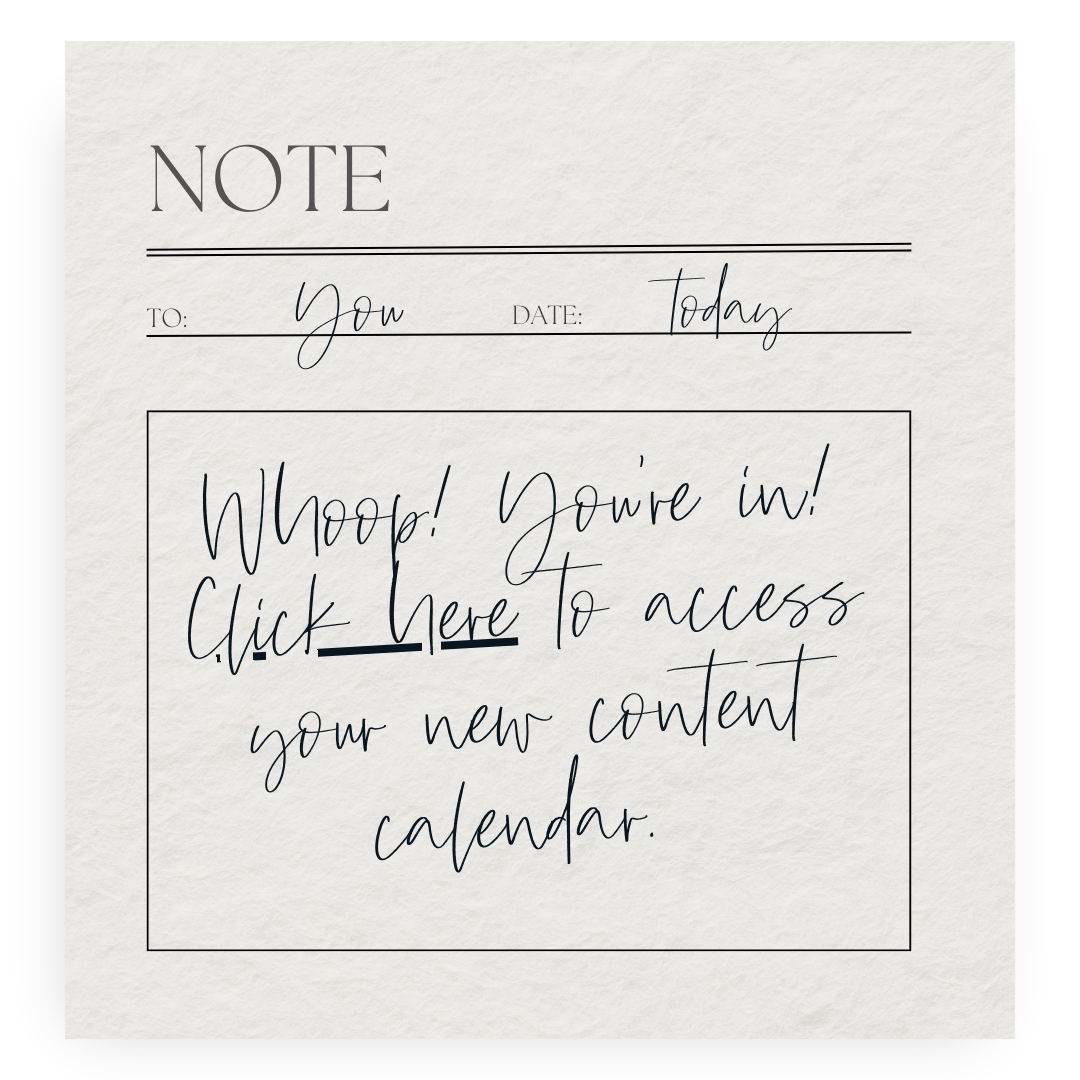 NOTE
TO: You DATE: today
Whoop! You're in!
Click here to access
your new content
calendar.